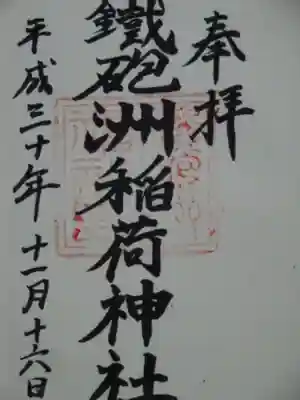 奉拝
鐵砲洲稲荷神社
平成三十年十一月十六日